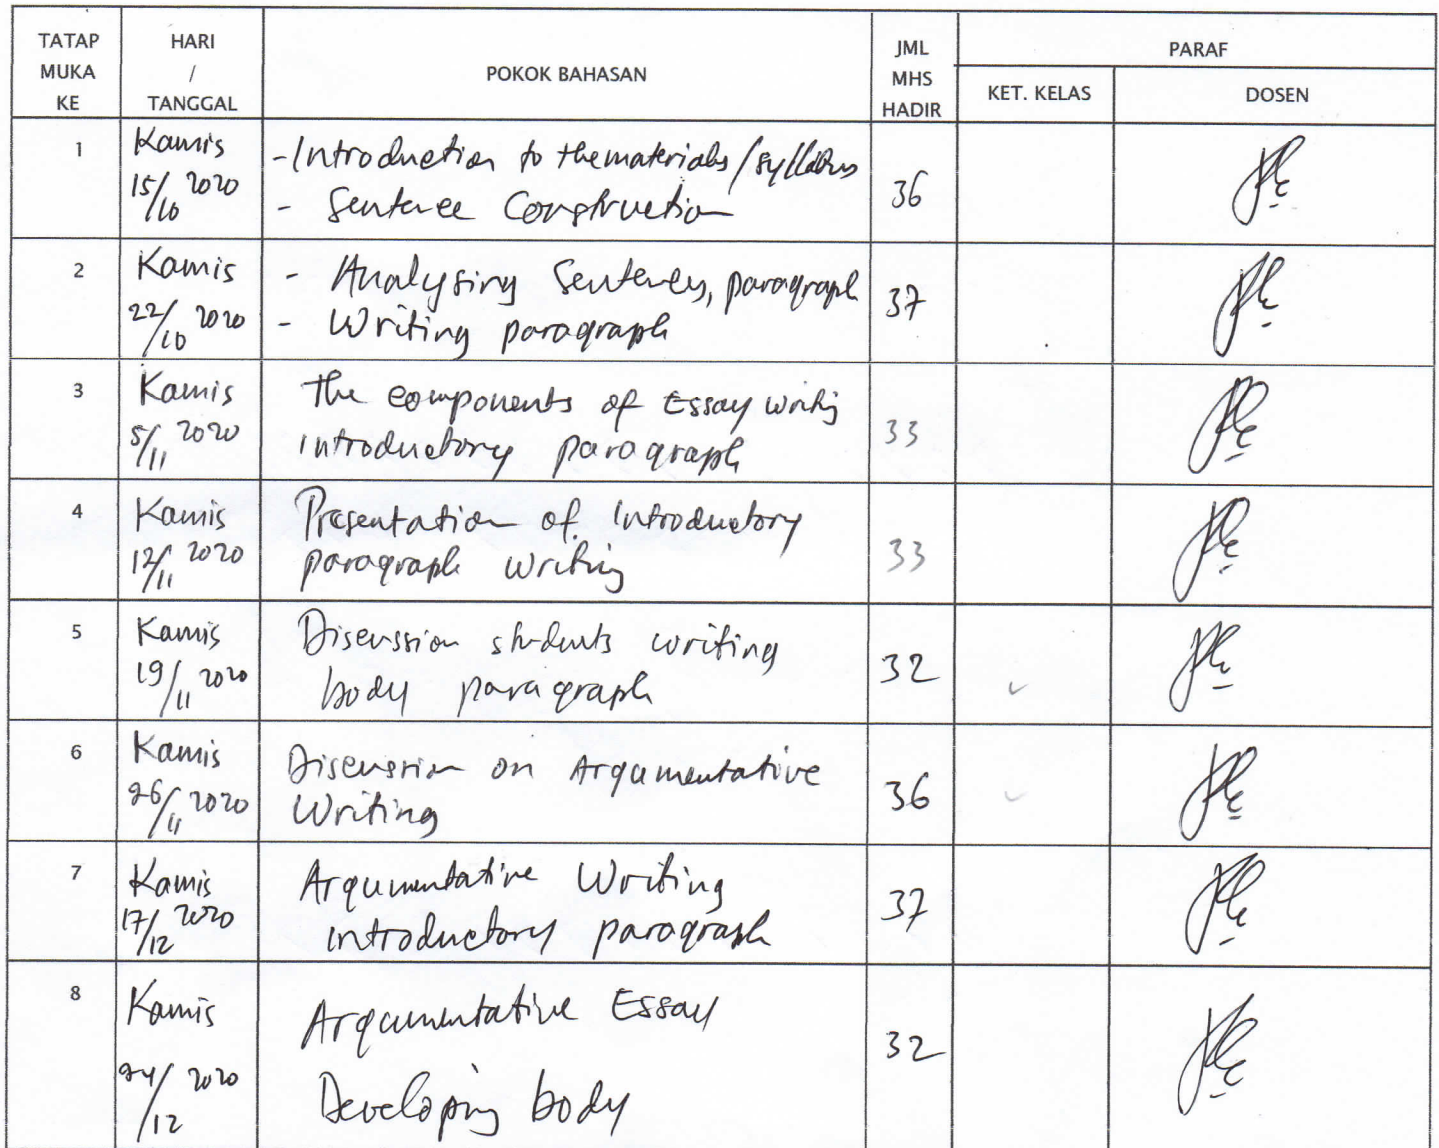 TATAP MUKA KE
HARI / TANGGAL
POKOK BAHASAN
JML MHS HADIR
PARAF
KET. KELAS
DOSEN
1
Kamis
15/10 2020
- Introduction to the materials/syllabus
- Sentence Construction
36
2
Kamis
22/10 2020
- Analysing Sentences, paragraph
- Writing paragraph
37
3
Kamis
5/11 2020
The components of Essay writing
introductory paragraph
33
4
Kamis
12/11 2020
Presentation of Introductory
paragraph writing
33
5
Kamis
19/11 2020
Discussion students writing
body paragraph
32
6
Kamis
26/11 2020
Discussion on Argumentative
Writing
36
7
Kamis
17/12 2020
Argumentative Writing
introductory paragraph
37
8
Kamis
24/12 2020
Argumentative Essay
Developing body
32